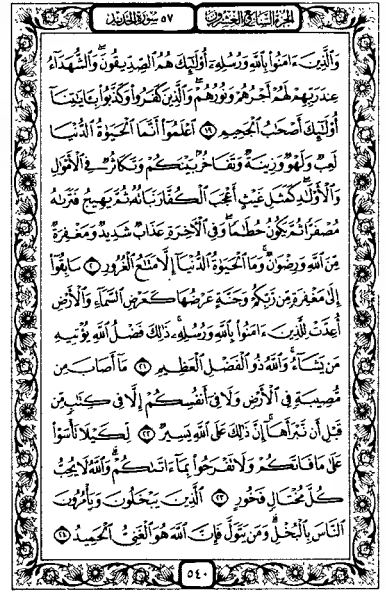 الجزء السابع والعشرون ٥٧ سورة الحديد
وَالَّذِينَ ءَامَنُوا۟ بِاللَّهِ وَرُسُلِهِۦٓ أُو۟لَٰٓئِكَ هُمُ ٱلصِّدِّيقُونَ ۖ وَٱلشُّهَدَآءُ
عِندَ رَبِّهِمْ لَهُمْ أَجْرُهُمْ وَنُورُهُمْ ۖ وَٱلَّذِينَ كَفَرُوا۟ وَكَذَّبُوا۟ بِـَٔايَٰتِنَآ
أُو۟لَٰٓئِكَ أَصْحَٰبُ ٱلْجَحِيمِ ١٩ ٱعْلَمُوٓا۟ أَنَّمَا ٱلْحَيَوٰةُ ٱلدُّنْيَا
لَعِبٌ وَلَهْوٌ وَزِينَةٌ وَتَفَاخُرٌۢ بَيْنَكُمْ وَتَكَاثُرٌ فِى ٱلْأَمْوَٰلِ
وَٱلْأَوْلَٰدِ ۖ كَمَثَلِ غَيْثٍ أَعْجَبَ ٱلْكُفَّارَ نَبَاتُهُۥ ثُمَّ يَهِيجُ فَتَرَىٰهُ
مُصْفَرًّا ثُمَّ يَكُونُ حُطَٰمًا ۖ وَفِى ٱلْءَاخِرَةِ عَذَابٌ شَدِيدٌ وَمَغْفِرَةٌ
مِّنَ ٱللَّهِ وَرِضْوَٰنٌ ۚ وَمَا ٱلْحَيَوٰةُ ٱلدُّنْيَآ إِلَّا مَتَٰعُ ٱلْغُرُورِ ٢٠ سَابِقُوٓا۟
إِلَىٰ مَغْفِرَةٍ مِّن رَّبِّكُمْ وَجَنَّةٍ عَرْضُهَا كَعَرْضِ ٱلسَّمَآءِ وَٱلْأَرْضِ
أُعِدَّتْ لِلَّذِينَ ءَامَنُوا۟ بِٱللَّهِ وَرُسُلِهِۦ ۚ ذَٰلِكَ فَضْلُ ٱللَّهِ يُؤْتِيهِ
مَن يَشَآءُ ۚ وَٱللَّهُ ذُو ٱلْفَضْلِ ٱلْعَظِيمِ ٢١ مَآ أَصَابَ مِن
مُّصِيبَةٍ فِى ٱلْأَرْضِ وَلَا فِىٓ أَنفُسِكُمْ إِلَّا فِى كِتَٰبٍ مِّن
قَبْلِ أَن نَّبْرَأَهَآ ۚ إِنَّ ذَٰلِكَ عَلَى ٱللَّهِ يَسِيرٌ ٢٢ لِّكَيْلَا تَأْسَوْا۟
عَلَىٰ مَا فَاتَكُمْ وَلَا تَفْرَحُوا۟ بِمَآ ءَاتَىٰكُمْ ۗ وَٱللَّهُ لَا يُحِبُّ
كُلَّ مُخْتَالٍ فَخُورٍ ٢٣ ٱلَّذِينَ يَبْخَلُونَ وَيَأْمُرُونَ
ٱلنَّاسَ بِٱلْبُخْلِ ۗ وَمَن يَتَوَلَّ فَإِنَّ ٱللَّهَ هُوَ ٱلْغَنِىُّ ٱلْحَمِيدُ ٢٤
٥٤٠